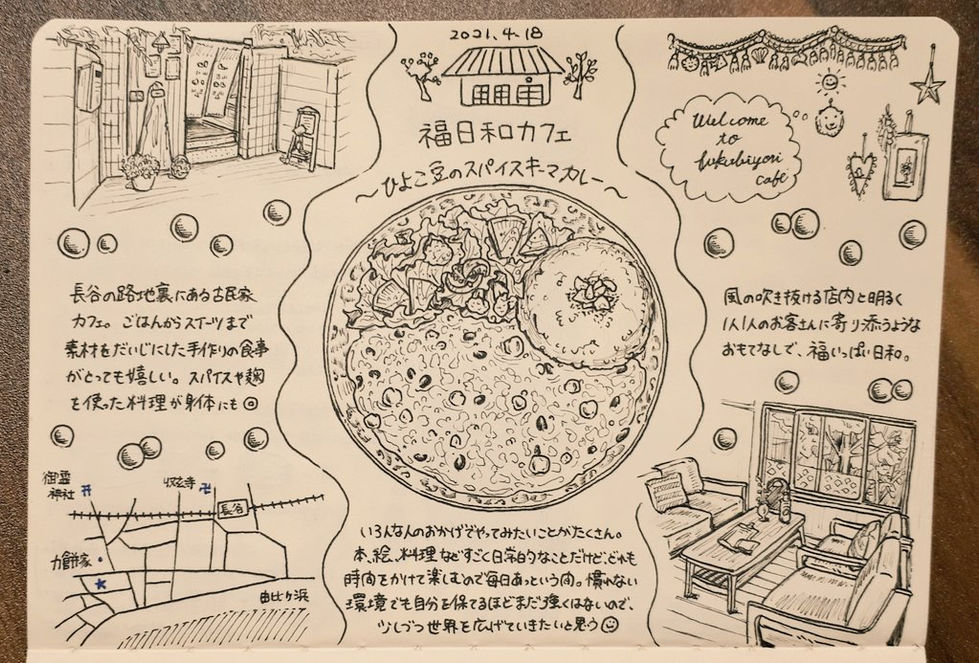 2021.4.18
福日和カフェ
〜ひよこ豆のスパイスキーマカレー〜
Welcome
to
fukubiyori
café
長谷の路地裏にある古民家
カフェ。ごはんからスイーツまで
素材をだいじにした手作りの食事
がとっても嬉しい。スパイスや麹
を使った料理が身体にも◎
風の吹き抜ける店内と明るく
1人1人のお客さんに寄り添うような
おもてなしで、福いっぱい日和。
御霊
神社
収玄寺
長谷
力餅家
由比ヶ浜
いろんな人のおかげでやってみたいことがたくさん。
本、絵、料理などすごく日常的なことだけど、どれも
時間をかけて楽しむので毎日あっという間。慣れない
環境でも自分を保てるほどまだ強くはないので、
少しづつ世界を広げていきたいと思う☺